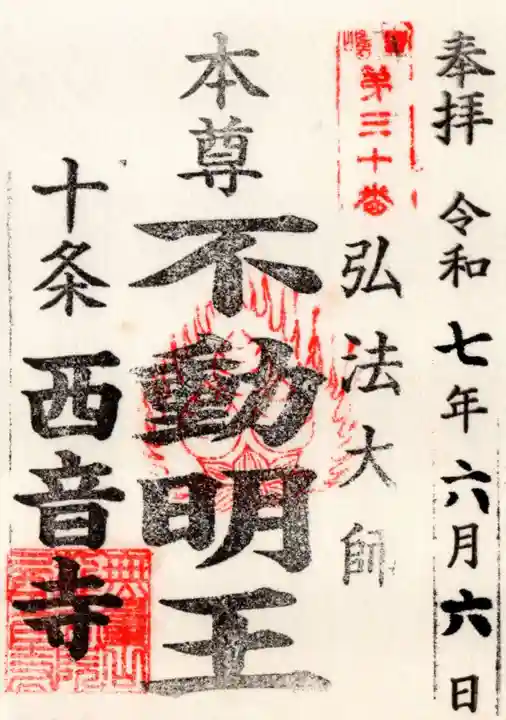 奉拝 令和七年六月六日
第三十番
弘法大師
本尊 不動明王
十条 西音寺